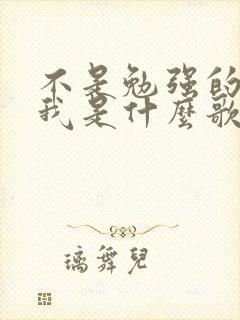 不是勉强的
我是什麽歌
璃舞兒